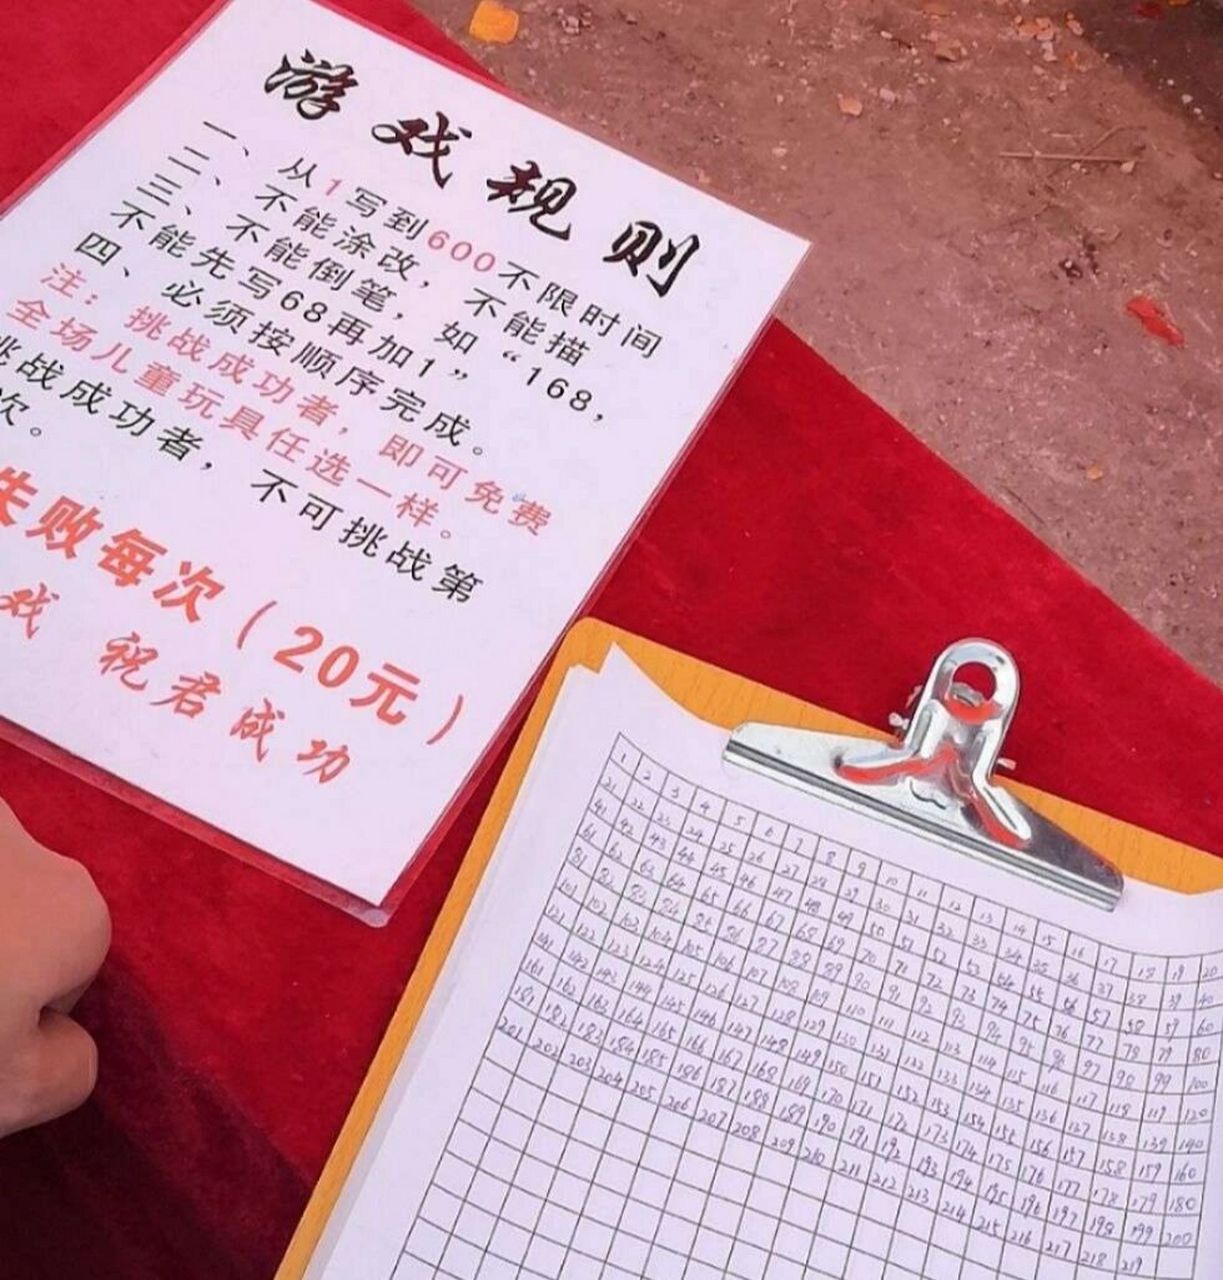 游戏规则
一、从1写到600不限时间
二、不能涂改，不能描
三、不能倒笔，如“168，
不能先写68再加1”
四、必须按顺序完成。
注：挑战成功者，即可免费
全场儿童玩具任选一样。
挑战成功者，不可挑战第
次。
失败每次（20元）
戏 祝君成功
1 2 3 4 5 6 7 8 9 10 11 12 13 14 15 16 17 18 19 20
21 22 23 24 25 26 27 28 29 30 31 32 33 34 35 36 37 38 39 40
41 42 43 44 45 46 47 48 49 50 51 52 53 54 55 56 57 58 59 60
61 62 63 64 65 66 67 68 69 70 71 72 73 74 75 76 77 78 79 80
81 82 83 84 85 86 87 88 89 90 91 92 93 94 95 96 97 98 99 100
101 102 103 104 105 106 107 108 109 110 111 112 113 114 115 116 117 118 119 120
121 122 123 124 125 126 127 128 129 130 131 132 133 134 135 136 137 138 139 140
141 142 143 144 145 146 147 148 149 150 151 152 153 154 155 156 157 158 159 160
161 162 163 164 165 166 167 168 169 170 171 172 173 174 175 176 177 178 179 180
181 182 183 184 185 186 187 188 189 190 191 192 193 194 195 196 197 198 199 200
201 202 203 204 205 206 207 208 209 210 211 212 213 214 215 216 217 218 219